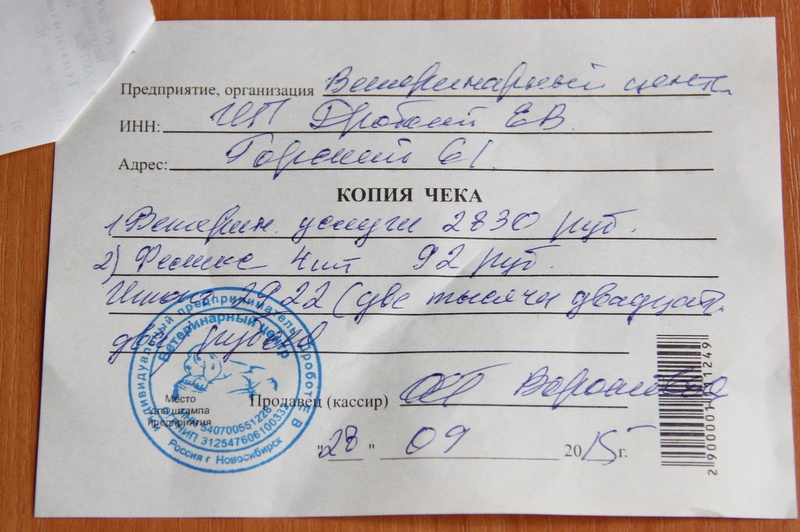 Предприятие, организация Ветеринарный центр
ИНН: ИП Дробот ЕВ
Адрес: Горский 61
КОПИЯ ЧЕКА
1) Ветерин. услуги 2830 руб.
2) Феликс 4 шт 92 руб.
Итого 2922 (две тысячи двадцат
два рубля
Продавец (кассир)
Место
для штампа
предприятия
"28" 09 2015 г.
Индивидуальный предприниматель Дробот Е В
Ветеринарный центр
ИНН 540700551228
ОГРНИП 312547606100332
Россия г Новосибирск
2 900001 311249